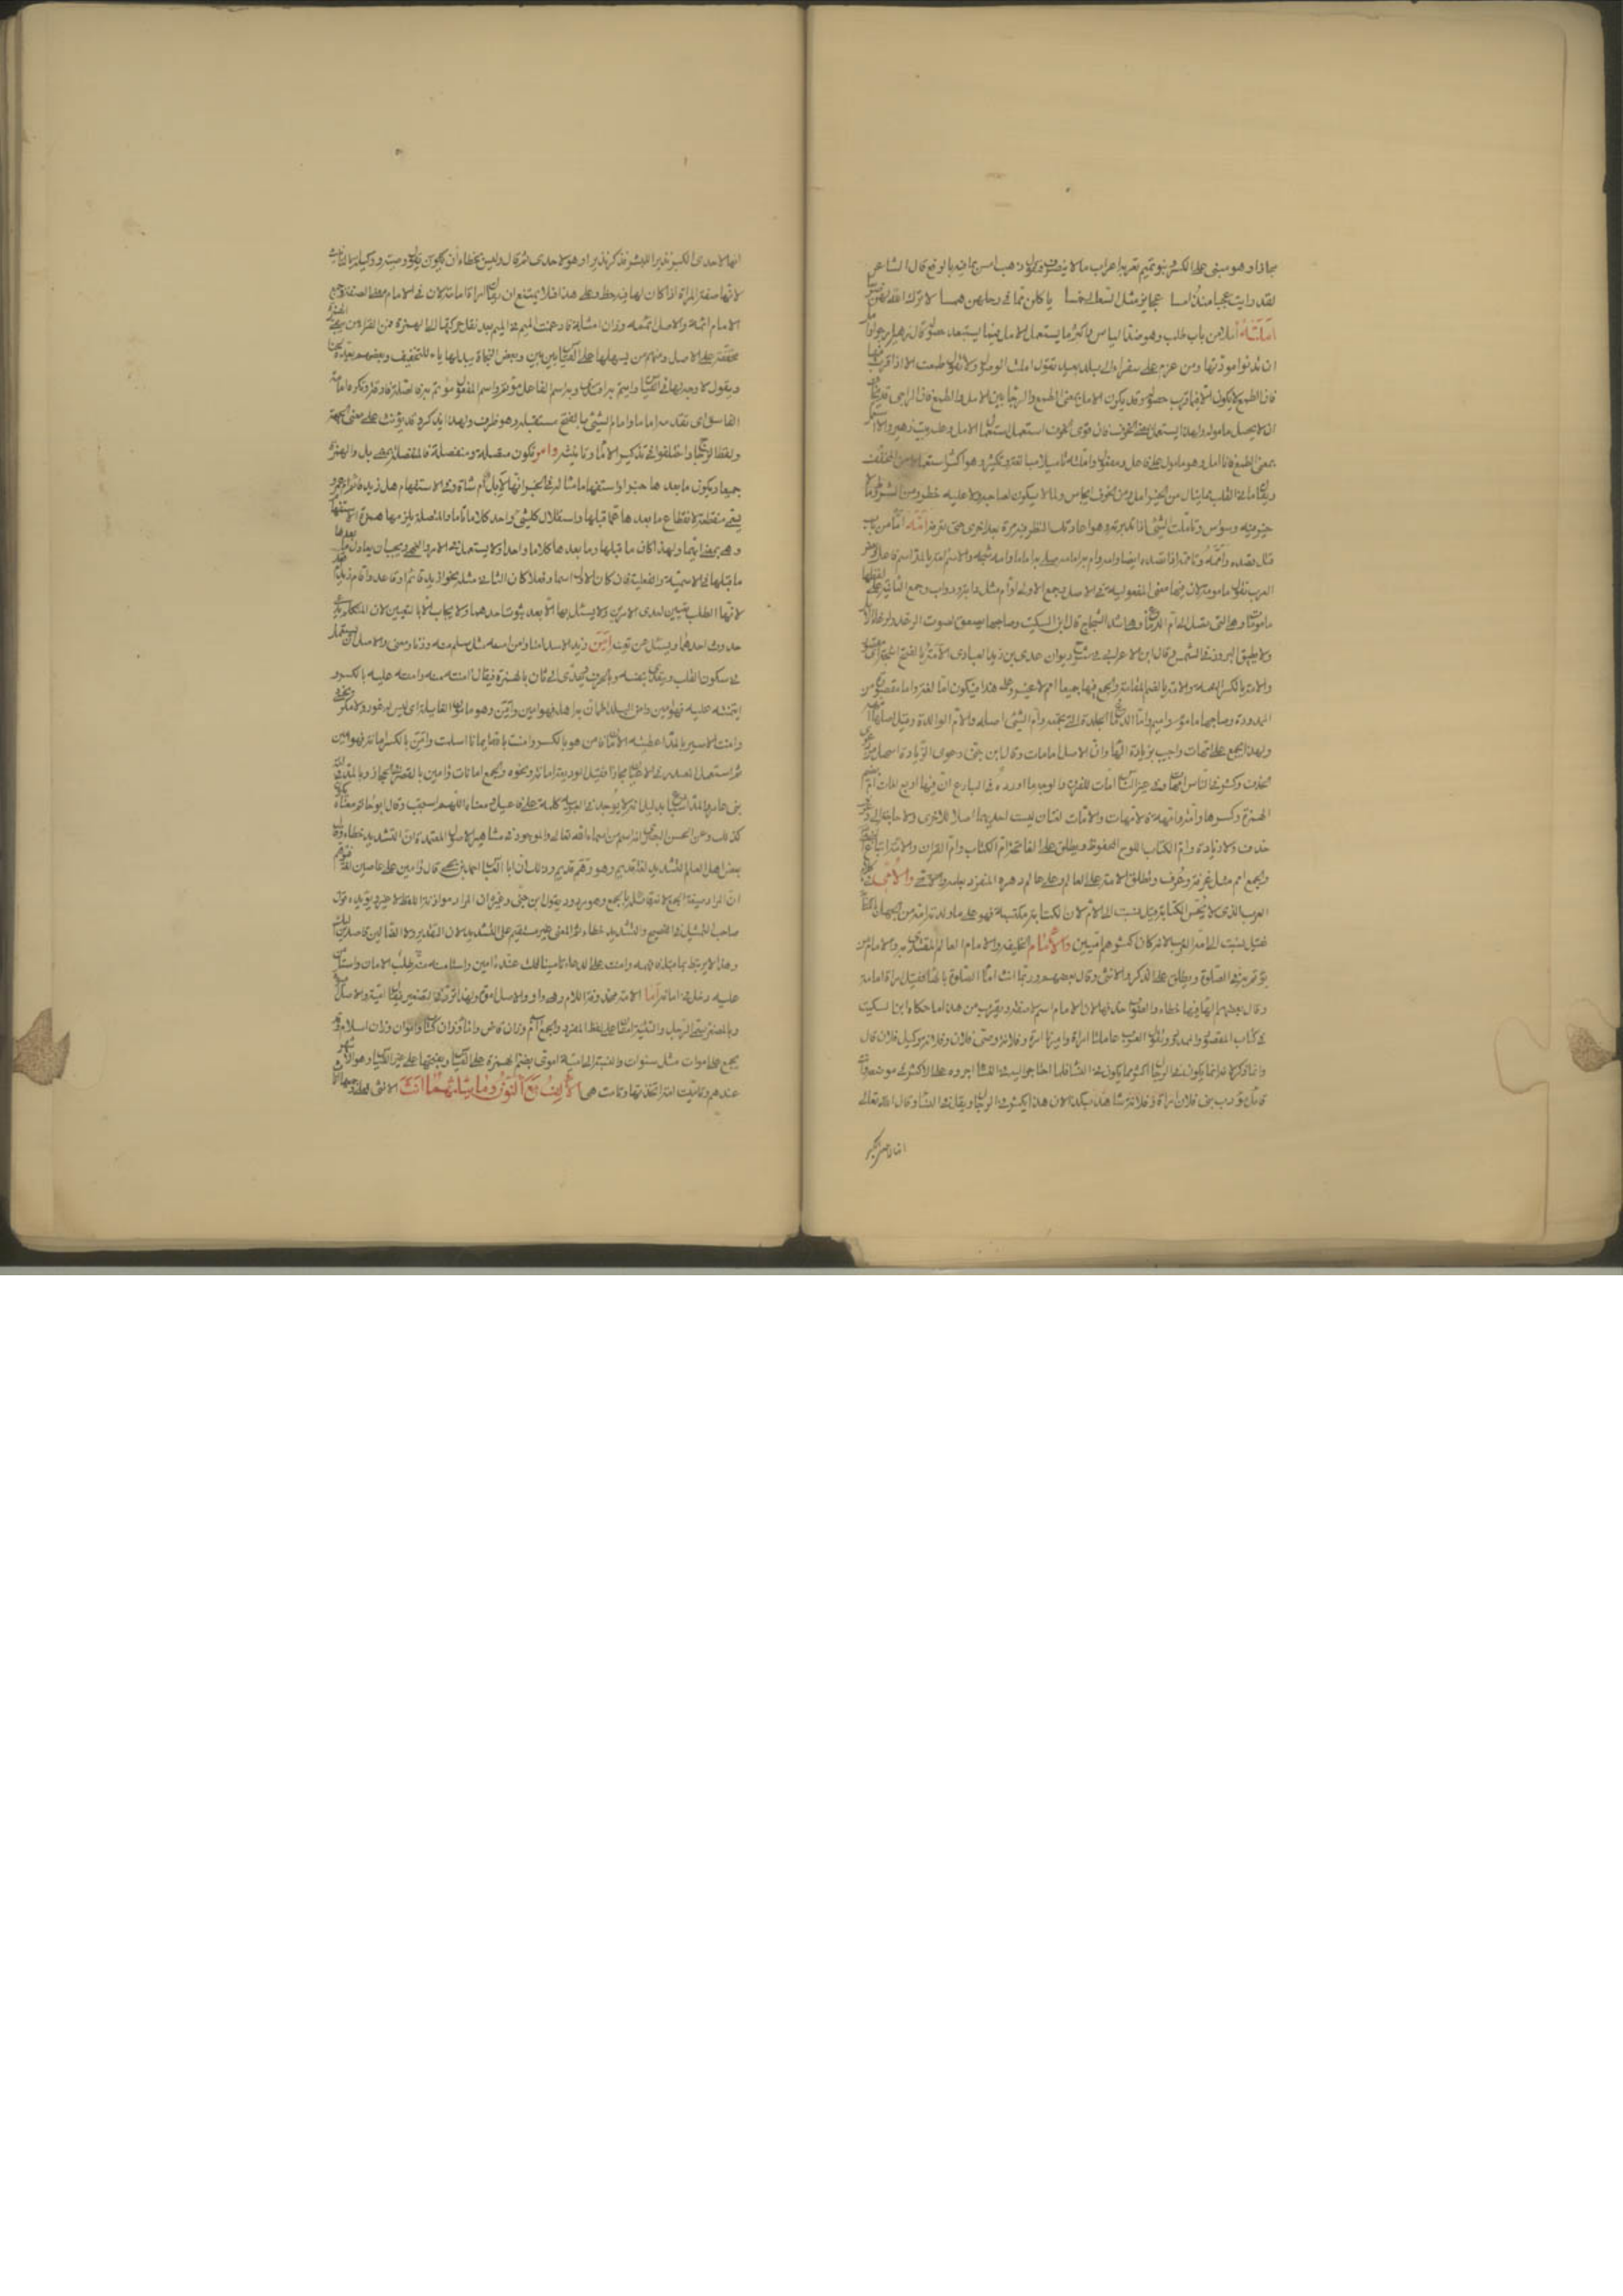 مجازا وهو مبنى على الكسر وبنو تميم تعربه اعراب ما لا ينصرف فتقول ذهب امس بما فيه بالرفع قال الشاعر
لقد رايت عجبا منذ امسا عجايز مثل السعالى خمسا ياكلن ما فى رحلهن همسا لا ترك الله لهن ضرسا
املته أملا من باب طلب وهو ضد الياس واكثر ما يستعمل الامل فيما يستبعد حصوله قال زهير ارجو وآمل
ان تدنو مودتها ومن عزم على سفر الى بلد بعيد يقول املت الوصول ولا يقول طمعت الا اذا قرب منها
فان الطمع لا يكون الا فيما قرب حصوله وقد يكون الامل بمعنى الطمع والرجاء بين الامل والطمع فان الراجى قد يخاف
ان لا يحصل ماموله ولهذا يستعمل بمعنى الخوف فان قوى الخوف استعمل استعمال الامل وعليه بيت زهير والا استعمل
بمعنى الطمع فانا امل وهو مامول على فاعل ومفعول واملته تاميلا مبالغة وتكثير وهو اكثر استعمالا من المخفف
ويقال لما فى القلب مما ينال من الخير امل ومن الخوف ايجاس ولما لا يكون لصاحبه ولا عليه خطر ومن الشر وما لا
خير فيه وسواس وتاملت الشئ اذا تدبرته وهو اعادتك النظر فيه مرة بعد اخرى حتى تعرفه امه اما من باب
قتل قصده واممه وتاممه اذا قصده ايضا وامه وام به امامة صلى به اماما وامه شجه والاسم امة بالمد اسم فاعل وبعض
العرب يقول مامومة لان فيها معنى المفعولية فى الاصل وجمع الاولى اوام مثل دابة ودواب وجمع الثانية على لفظها
مامومات وهى التى تصل الى ام الدماغ وهى اشد الشجاج قال ابن السكيت وصاحبها يصعق لصوت الرعد ولرغاء الابل
ولا يطيق البروز فى الشمس وقال ابن الاعرابى فى شرح ديوان عدى بن زيد العبادى الامة بالفتح الشجة اى مقصورا
والامة بالكسر النعمة والامة بالضم العامة والجمع فيها جميعا امم لا غير وعلى هذا فيكون اما لغة واما مقصورة من
الممدودة وصاحبها ماموم واميم وام الدماغ الجلدة التى تجمعه وام الشئ اصله والام الوالدة وقيل اصلها امهة
ولهذا يجمع على امهات واجيب بزيادة الهاء وان الاصل امات وقال ابن جنى دعوى الزيادة اسهل من دعوى
الحذف وكثر فى الناس امهات وفى غير الناس امات للفرق والوجه ما اورده فى البارع ان فيها اربع لغات ام بضم
الهمزة وكسرها وامة وامهة فالامهات والامات لغتان ليست احدهما اصلا للاخرى ولا حاجة الى دعوى
حذف ولا زيادة وام الكتاب اللوح المحفوظ ويطلق على الفاتحة ام الكتاب وام القران والامة اتباع النبى
والجمع امم مثل غرفة وغرف وتطلق الامة على عالم دهره المنفرد بعلمه والامى فى كلام
العرب الذى لا يحسن الكتابة فقيل نسبة الى الام لان الكتابة مكتسبة فهو على ما ولدته امه من الجهل بالكتابة
وقيل نسبة الى امة العرب لانه كان اكثرهم اميين والامام الخليفة والامام العالم المقتدى به والامام من
يؤتم به فى الصلوة ويطلق على الذكر والانثى وقال بعضهم وربما انث امام الصلوة بالهاء فقيل امرأة امامة
وقال بعضهم الهاء فيها خطاء والصواب حذفها لان الامام اسم لا صفة ويقرب من هذا ما حكاه ابن السكيت
فى كتاب المقصور والممدود وتقول العرب عاملنا امرأة واميرنا امرة وفلانة وصى فلان وفلانة وكيل فلان قال
وانما ذكر لانه انما يكون فى الرجال اكثر مما يكون فى النساء فلما احتاجوا اليه فى النساء اجروه على الاكثر فى موضعه وانت
قائل مؤذن بنى فلان امرأة وفلانة شاهد بكذا لان هذا يكثر فى الرجال ويقل فى النساء وقال الله تعالى
انها لاحدى الكبر
انها لاحدى الكبر نذيرا للبشر فذكر نذيرا وهو لاحدى ثم قال وليس بخطاء ان يكون تقول وصية ووكيلة بالتانيث
لانها صفة المراة اذا كان لها فيه حظ وعلى هذا فلا يمتنع ان يقال امرأة امامة لان فى الامام معنى الصفة وجمع
الامام ائمة والاصل اءممة وزان امثلة فادغمت الميم فى الميم بعد نقل حركتها الى الهمزة فمن القراء من يبقى الهمزة
محققة على الاصل ومنهم من يسهلها على القياس بين بين وبعض النحاة يبدلها ياء للتخفيف وبعضهم يعده لحنا
ويقول لا وجه له فى القياس وايتم به اقتدى به واسم الفاعل مؤتم واسم المفعول مؤتم به فالصلة فارقة وتكره امامة
الفاسق اى تقدمه اماما وامام الشئ بالفتح مستقبله وهو ظرف ولهذا يذكر وقد يؤنث على معنى الجهة
ولفظ الزجاج واختلفوا فى تذكير الامام وتانيثه وام تكون متصلة ومنفصلة فالمنفصلة بمعنى بل والهمزة
جميعا ويكون ما بعدها خبرا واستفهاما مثالها فى الخبر انها لابل ام شاة وفى الاستفهام هل زيد قائم ام عمرو
وتسمى منقطعة لانقطاع ما بعدها عما قبلها واستقلال كل واحد كلاما تاما والمتصلة يلزمها همزة الاستفهام
وهى بمعنى ايهما ولهذا كان ما قبلها وما بعدها كلاما واحدا ولا يستعمل فى الامر والنهى ويجب ان يعادل ما بعدها
ما قبلها فى الاسمية والفعلية فان كان الاول اسما وفعلا كان الثانى مثله نحو ازيد قائم ام قاعد واقام زيد ام قعد
لانها لطلب تعيين احد الامرين ولا يسئل بها الا بعد ثبوت احدهما ولا يجاب الا بالتعيين لان المتكلم يدعى
حدوث احدهما ويسئل عن تعيينه امن زيد الاسد امنا وامن منه مثل سلم منه وزنا ومعنى والاصل ان يستعمل
فى سكون القلب ويتعدى بنفسه وبالحرف ويعدى الى ثان بالهمزة فيقال امنته منه وامنته عليه بالكسر و
ائتمنته عليه فهو امين وامن البلد اطمأن به اهله فهو امن وامين وهو مامون الغايلة اى ليس له غور ولا مكر يخشى
وامنت الاسير بالمد اعطيته الامان فامن هو بالكسر وامنت بالله ايمانا اسلمت وامن بالكسر امانة فهو امين
ثم استعمل المصدر فى الاعيان مجازا فقيل الوديعة امانة ونحوه والجمع امانات وامين بالقصر فى الحجاز وبالمد فى لغة
بنى عامر والمد اشباع بدليل انه لا يوجد فى العربية كلمة على فاعيل ومعناه اللهم استجب وقال ابو حاتم معناه
كذلك وعن الحسن البصرى انه اسم من اسماء الله تعالى والموجود فى مشاهير الاصول المعتمدة ان التشديد خطاء وقال
بعض اهل العلم التشديد لغة قديم وهو وهم قديم وذلك ان ابا العباس احمد بن يحيى قال وامين مثال عاصين لغة فتوهم
ان المراد صيغة الجمع لانه قابله بالجمع وهو مردود بقول ابن جنى وغيره ان المراد موازنة اللفظ لا غير ويؤيده قول
صاحب التمثيل فى الفصيح والتشديد خطاء ثم المعنى غير مستقيم على التشديد لان التقدير ولا الضالين قاصدين اليك
وهذا لا يرتبط بما قبله فافهمه وامنت على الدعاء تامينا قلت عنده امين واستامنه طلب الامان واستامن
عليه دخل فى امانه اما الامة محذوفة اللام وهى واو والاصل اموة ولهذا ترد فى التصغير فيقال امية والاصل
وبالمصغر سمى الرجل والتثنية امتان على لفظ المفرد والجمع آم وزان قاض واماء وزان كتاب واموان وزان اسلام وقد
يجمع على اموات مثل سنوات والنسبة الى امية اموى بضم الهمزة على القياس وبفتحها على غير القياس وهو الاشهر
عندهم وتاميت امة اتخذتها وتامت هى الالف مع النون وما يثلثهما انث الانثى فعلى وجمعها